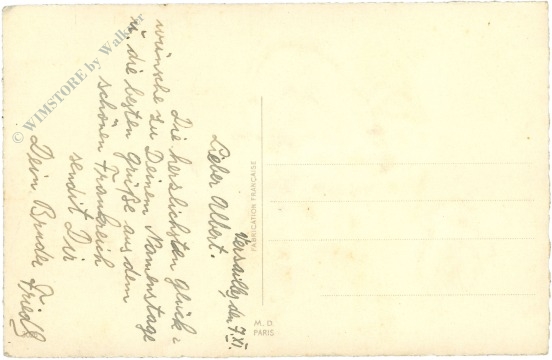 Versailles, den 7. XI.
Lieber Albert.
Die herzlichsten Glück-
wünsche zu Deinem Namenstage
u. die besten Grüße aus dem
schönen Frankreich
sendet Dir
Dein Bruder Friedl
FABRICATION FRANÇAISE
M. D.
PARIS
© WIMSTORE by Walker